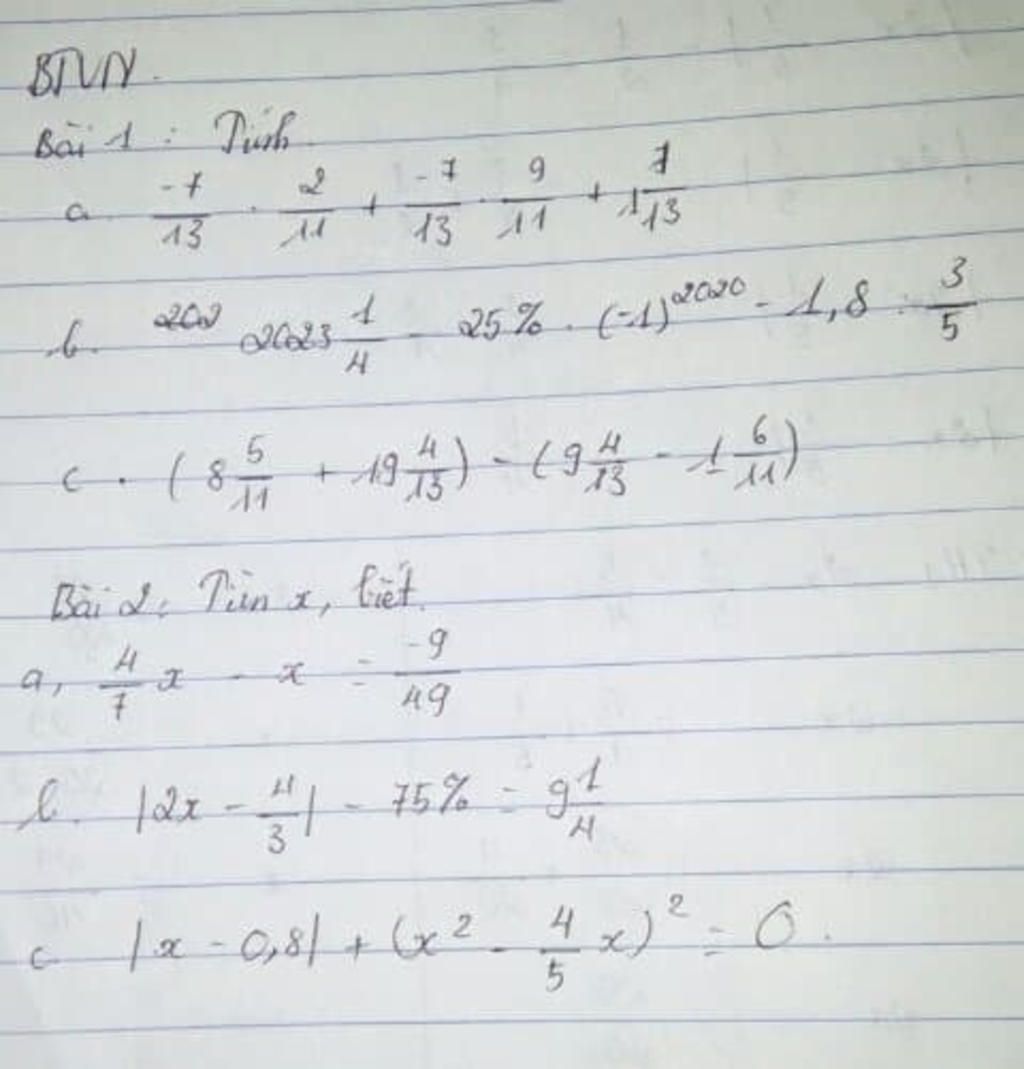 BTVN.
Bài 1 : Tính
a. \frac{-7}{13} . \frac{2}{11} + \frac{-7}{13} . \frac{9}{11} + 1\frac{7}{13}
b. 202 2023\frac{1}{4} - 25% . (-1)^{2020} - 1,8 : \frac{3}{5}
c. (8\frac{5}{11} + 19\frac{4}{13}) - (9\frac{4}{13} - 1\frac{6}{11})
Bài 2: Tìm x, biết.
a, \frac{4}{7}x - x = \frac{-9}{49}
b. |2x - \frac{4}{3}| - 75% = 9\frac{1}{4}
c. |x - 0,8| + (x^2 - \frac{4}{5}x)^2 = 0.